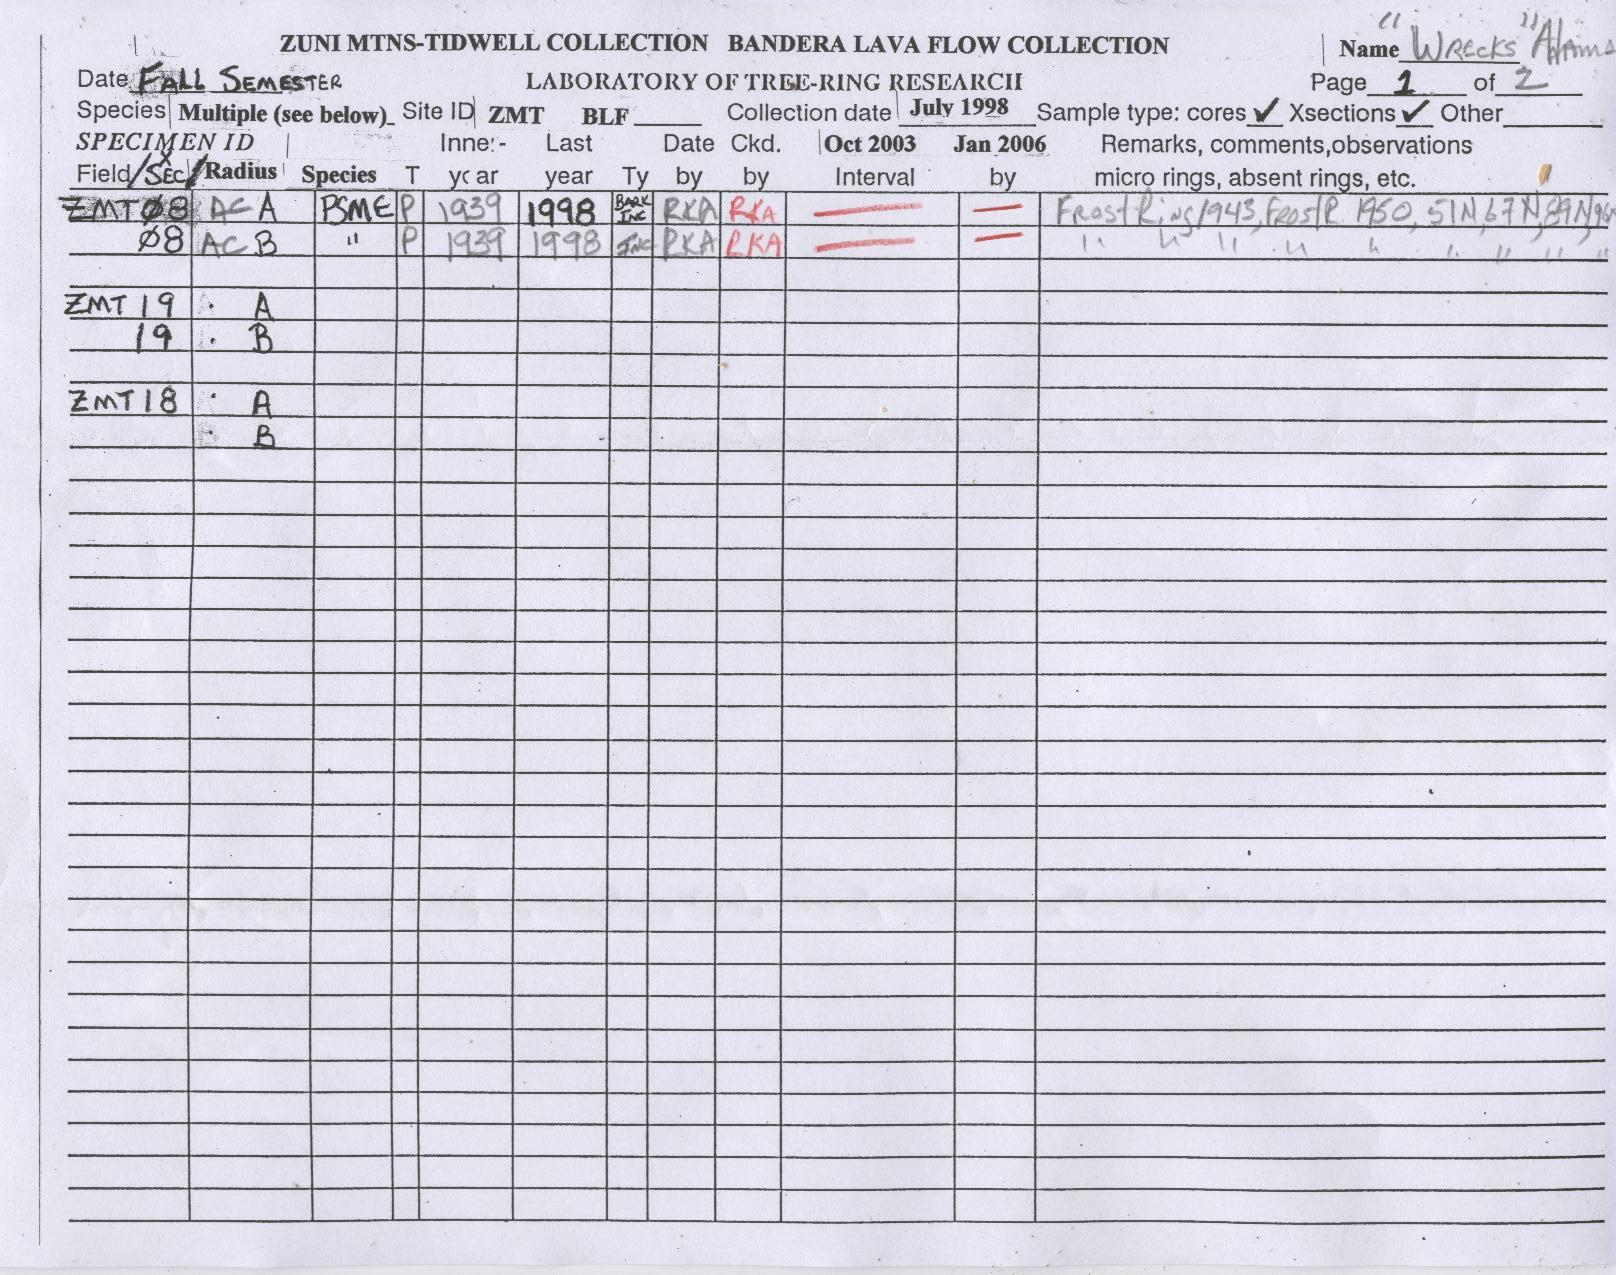 ZUNI MTNS-TIDWELL COLLECTION BANDERA LAVA FLOW COLLECTION Name "WRECKS" Adams
Date FALL SEMESTER LABORATORY OF TREE-RING RESEARCH Page 1 of 2
Species Multiple (see below) Site ID ZMT BLF Collection date July 1998 Sample type: cores ✓ Xsections ✓ Other
SPECIMEN ID Inner Last Date Ckd. Oct 2003 Jan 2006 Remarks, comments,observations
Field/XSEC/Radius Species T year year Ty by by Interval by micro rings, absent rings, etc.
ZMTØ8 AC A PSME P 1939 1998 BARK INC RKA RKA — — Frost Ring 1943, Frost R 1950, 51N, 67N, 89N,
Ø8 AC B " P 1939 1998 INC RKA RKA — — " " " " " " " " "
ZMT 19 A
19 B
ZMT 18 A
B